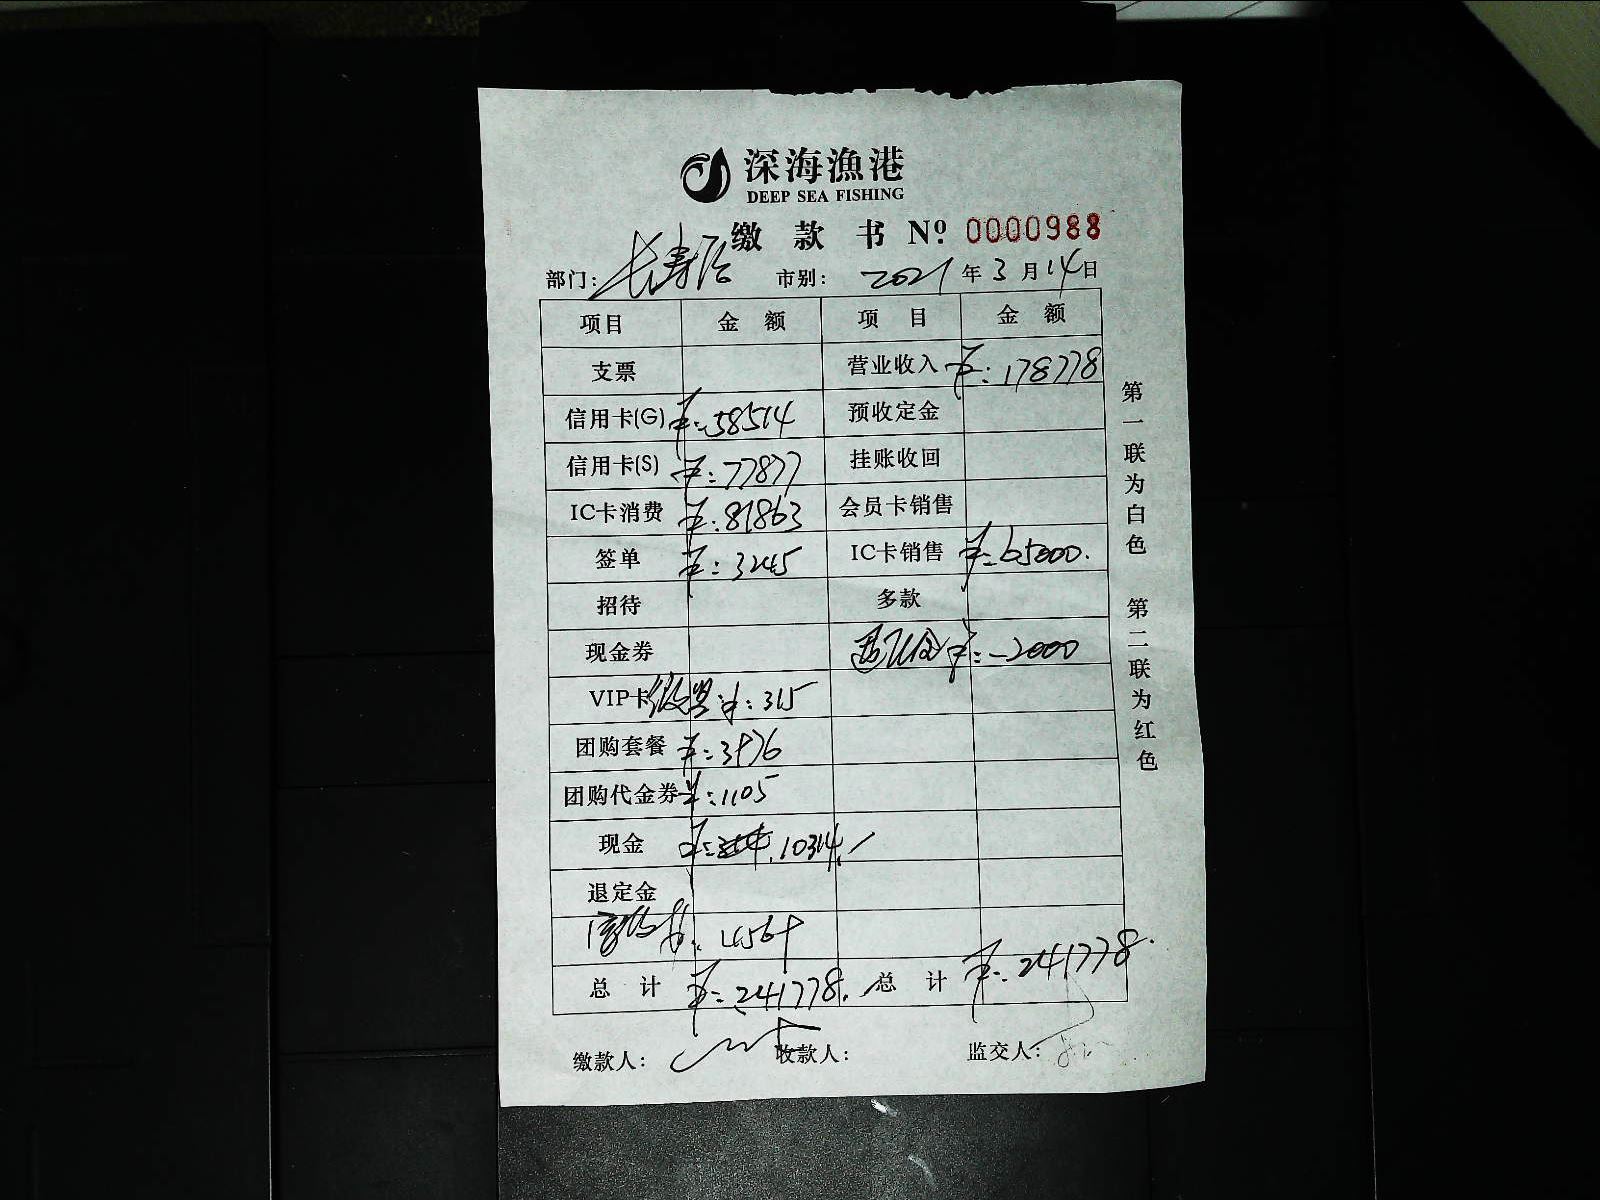 深海漁港
DEEP SEA FISHING
缴款书 Nº 0000988
部门: 长寿 市别: 2021年3月14日
项目 金额 项目 金额
支票 营业收入 ¥:178778
信用卡(G) ¥:58514 预收定金
信用卡(S) ¥:77877 挂账收回
IC卡消费 ¥:81863 会员卡销售
签单 ¥:3245 IC卡销售 ¥:65000.
招待 多款
现金券 退订金 ¥:-2000
VIP卡 ¥:315
团购套餐 ¥:3976
团购代金券 ¥:1105
现金 ¥: 10314.
退定金
4569
总计 ¥:241778. 总计 ¥:241778.
缴款人: 收款人: 监交人:
第一联为白色 第二联为红色